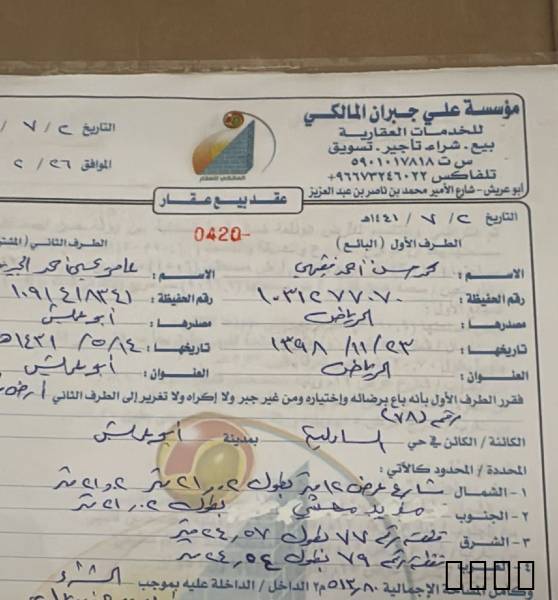 مؤسسة علي جبران المالكي
للخدمات العقارية
بيع - شراء تأجير - تسويق
س ت ٥٩٠١٠١٧٨١٨
تلفاكس ٩٦٦٧٣٢٤٦٠٢٢+
أبو عريش - شارع الأمير محمد بن ناصر بن عبد العزيز
التاريخ ٢ / ٧ /
الموافق ٢٦ / ٢
عقد بيع عقار
التاريخ ٢ / ٧ / ١٤٤١هـ
0420-
الطرف الأول ( البائع ) الطرف الثاني ( المشتر
الاسم : محمد حسن أحمد الاسم : عامر يحيى محمد
رقم الحفيظة : ١٠٣١٢٧٧٠٧٠ رقم الحفيظة : ١٠٩١٤١٨٣٤١
مصدرها : الرياض مصدرها : أبو عريش
تاريخها : ٢٣ / ١١ / ١٣٩٨ تاريخها : ١٤ / ٥ / ١٤٣١هـ
العنوان : الرياض العنوان : أبو عريش
فقرر الطرف الأول بأنه باع برضائه وإختياره ومن غير جبر ولا إكراه ولا تغرير إلى الطرف الثاني أرض
رقم (٧٨)
الكائنة / الكائن في حي بمدينة أبو عريش
المحددة / المحدود كالآتي :
١ - الشمال شارع عرض ١٢ متر بطول ٢١,٠٢ متر
٢ - الجنوب بطول ٢١,٠٢ متر
٣ - الشرق قطعة رقم ٧٧ بطول ٢٤,٥٧ متر
قطعة رقم ٧٩ بطول ٢٤,٥٤ متر
وكامل المساحة الإجمالية ٥١٣,٨٠ م٢ الداخل / الداخلة عليه بموجب الشراء